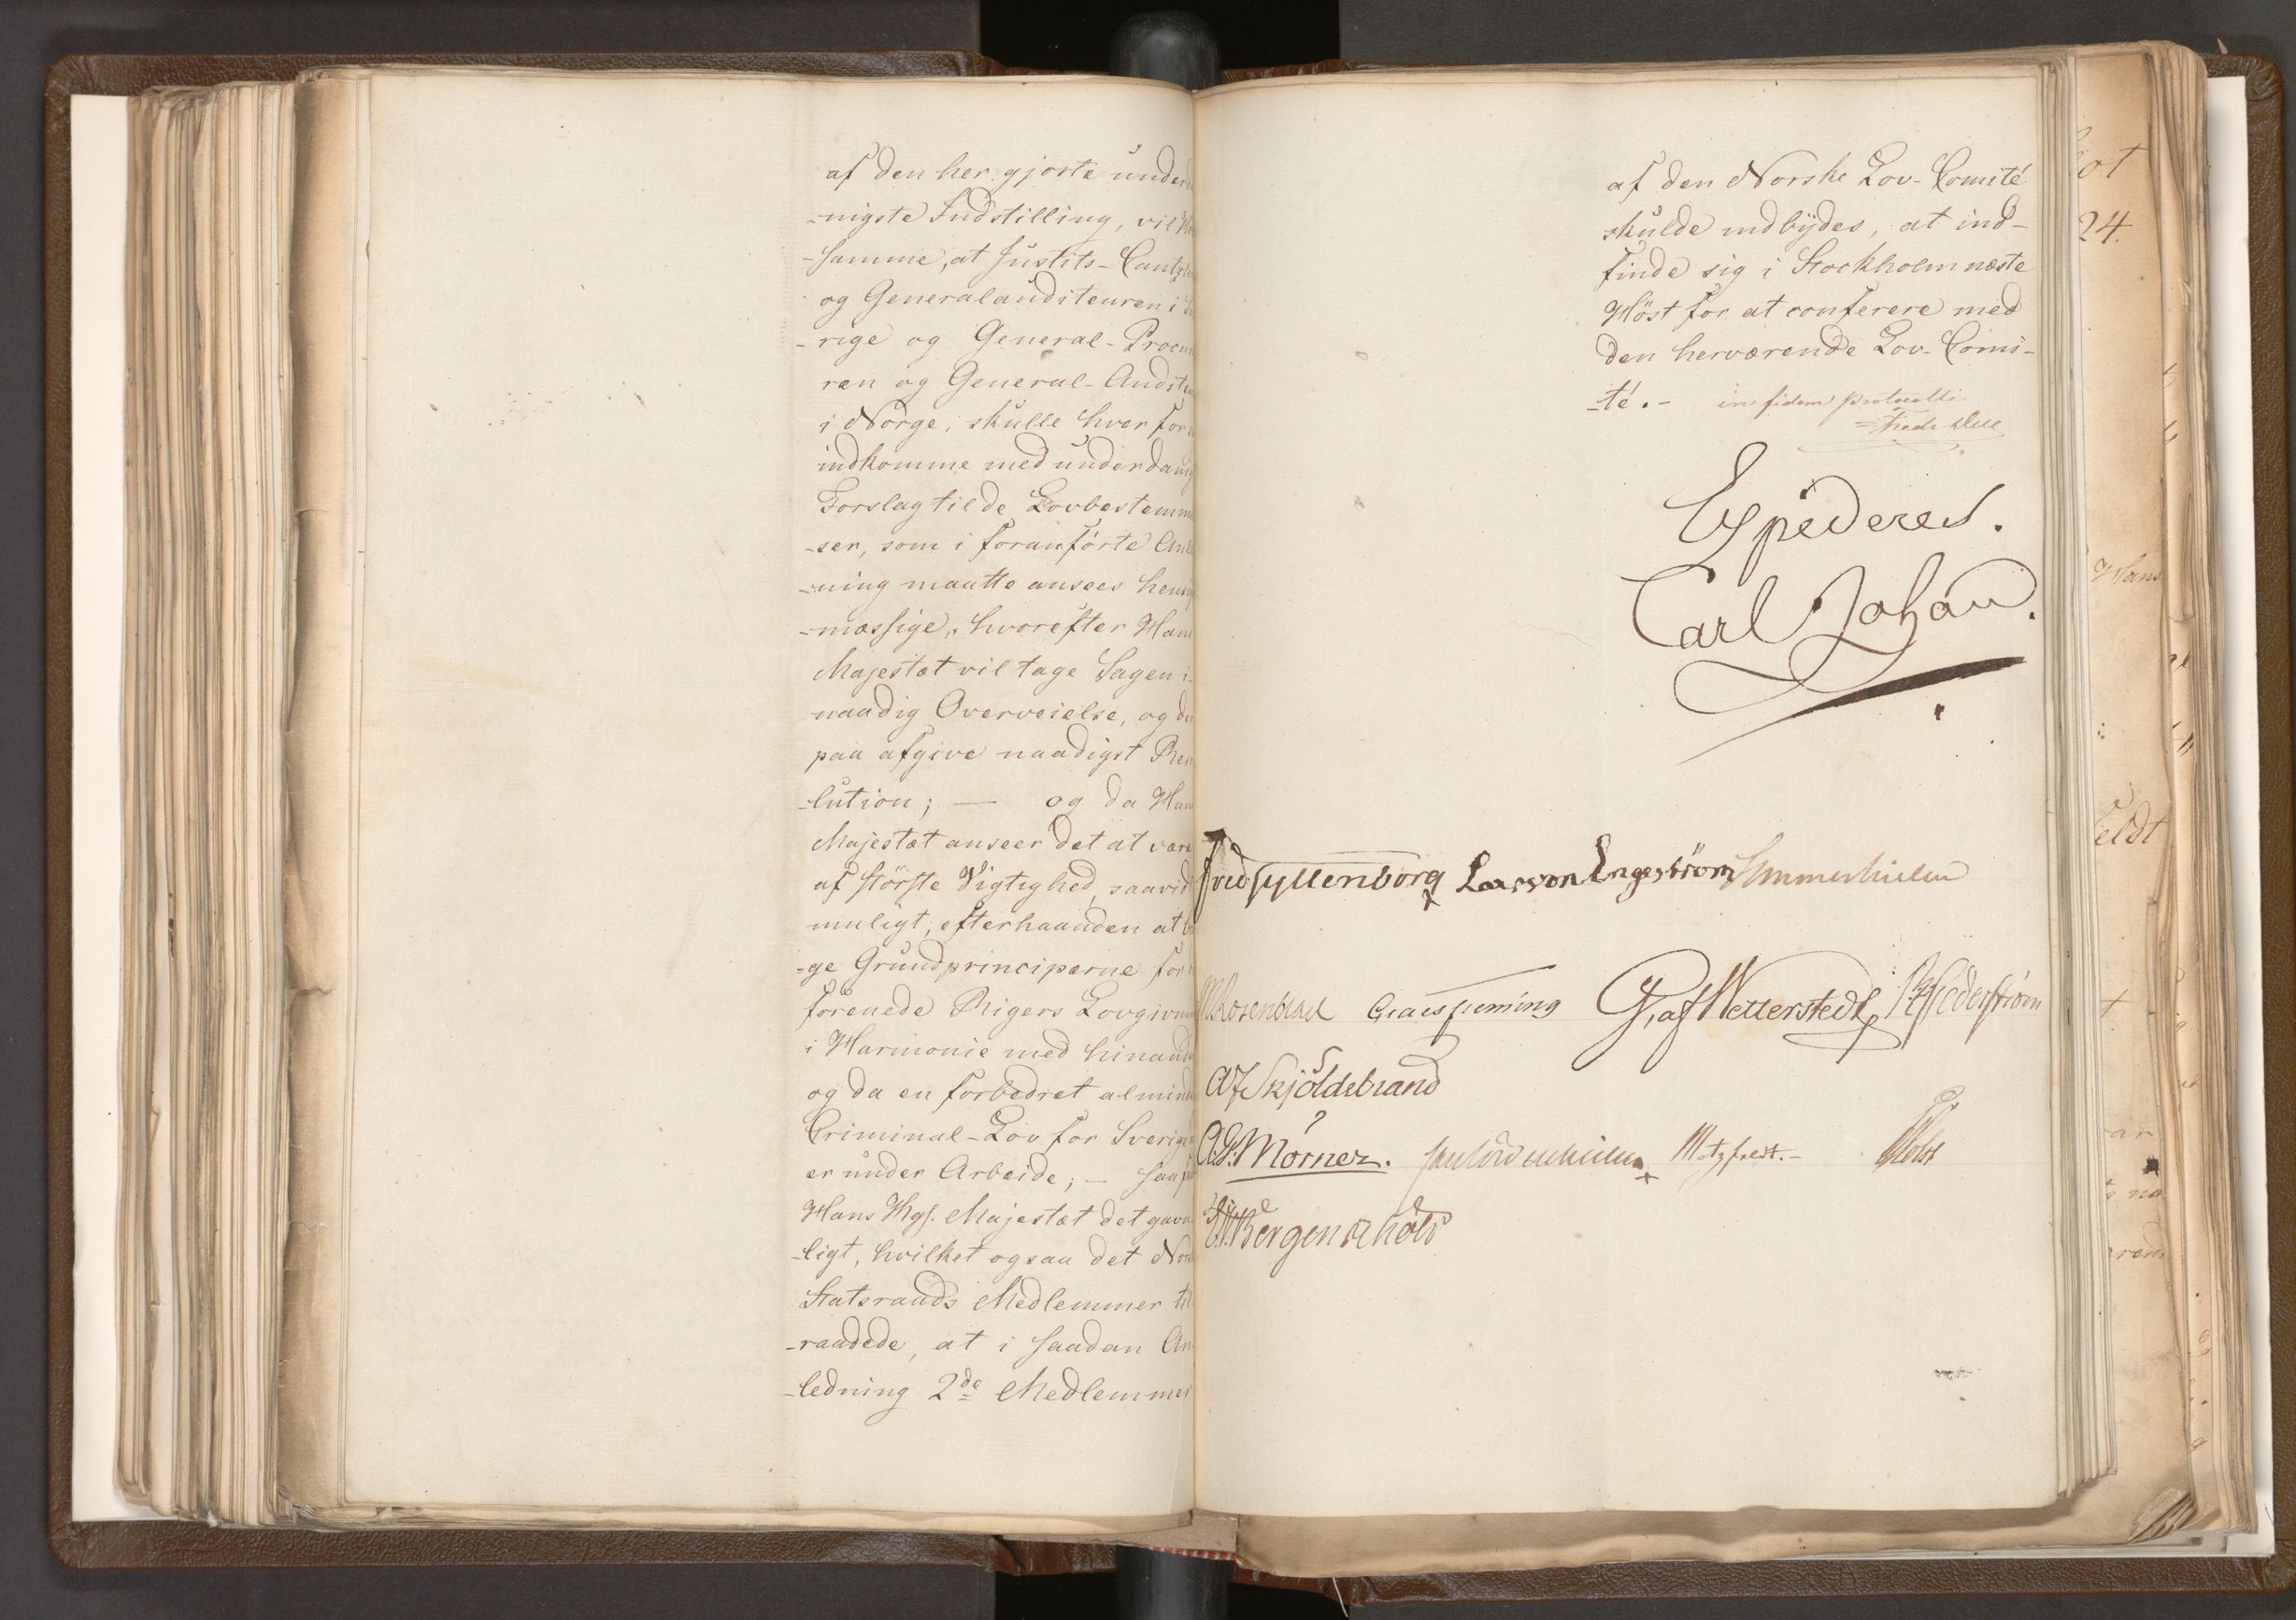 af den her gjorte underd
-nigste Indstilling, vil Hø
-samme, at Justits-Cantzle
og Generalauditeuren i Sv
-rige og General-Procur
ren og General-Audite
i Norge, skulle hver for
indkomme med underdanig
Forslag til de Lovbestemm
-ser, som i foranførte Anl
-ning maatte ansees hensig
-mæssige, hvorefter Hans
Majestæt vil tage Sagen i
naadig Overveielse, og de
paa afgive naadigst Res
-lution; — og da Hans
Majestæt anseer det at være
af største Vigtighed, saavidt
muligt, efterhaanden at b
-ge Grundprinciperne for
forenede Rigers Lovgivni
i Harmonie med hinand
og da en forbedret almind
Criminal-Lov for Sverige
er under Arbeide; — saa
Hans Kgl. Majestæt det gavn
-ligt, hvilket ogsaa det Nor
Statsraads Medlemmer til
-raadede, at i saadan An
-ledning 2de Medlemmer
af den Norske Lov-Comité
skulde indbydes, at ind-
finde sig i Stockholm næste
Høst for at conferere med
den herværende Lov-Comi-
-té. — in fidem protocolli
Fredr Due
Expederes.
Carl Johan.
Fred Gyllenborg Lars von Engeström Sommerhielm
M Rosenblad Claes Fleming G. af Wetterstedt R Cederström
AF Skjöldebrand
C. G. Mörner. Motzfeldt. — Holst
Bergenschöld
ot
24.
Hans
eldt
ar